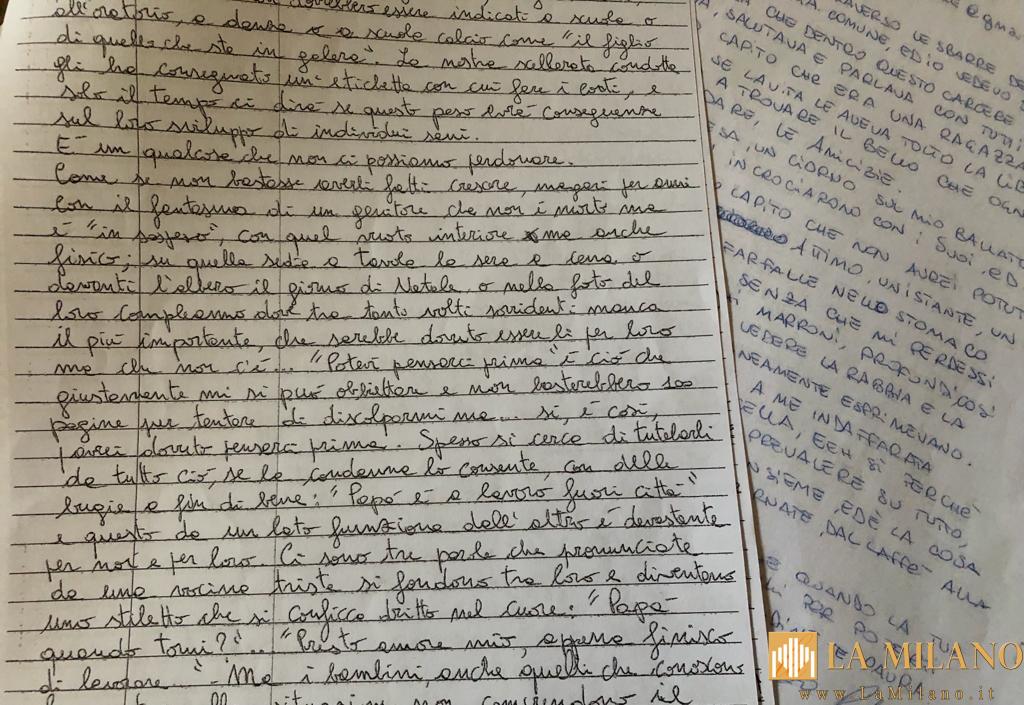 dovrebbero essere indicati a scuola o
all'oratorio, a danza o a scuola calcio come "il figlio
di quello che sta in galera". La nostra scellerata condotta
gli ha consegnato un'etichetta con cui fare i conti, e
solo il tempo ci dirà se questo peso avrà conseguenze
sul loro sviluppo di individui sani.
È un qualcosa che non ci possiamo perdonare.
Come se non bastasse averli fatti crescere, magari per anni
con il fantasma di un genitore che non è morto ma
è "in sospeso", con quel vuoto interiore ma anche
fisico; su quella sedia a tavola la sera a cena, o
davanti l'albero il giorno di Natale, o nella foto del
loro compleanno dove tra tanti volti sorridenti manca
il più importante, che sarebbe dovuto essere lì per loro
ma che non c'è... "Potevi pensarci prima" è ciò che
giustamente mi si può obbiettare e non basterebbero 100
pagine per tentare di discolparmi ma... si, è così,
avrei dovuto pensarci prima. Spesso si cerca di tutelarli
da tutto ciò, se la condanna lo consente, con delle
bugie a fin di bene: "Papà è a lavoro fuori città"
e questo da un lato funziona dall'altro è devastante
per noi e per loro. Ci sono tre parole che pronunciate
da una vocina triste si fondono tra loro e diventano
uno stiletto che si conficca dritto nel cuore: "Papà
quando torni?".. "Presto amore mio, appena finisco
di lavorare" - Ma i bambini, anche quelli che conoscono
non comprendono il
ATTRAVERSO LE SBARRE
COMUNE, ED IO VEDEVO
CHE DENTRO QUESTO CARCERE
SALUTAVA E PARLAVA CON TUTTI
CAPITO CHE ERA UNA RAGAZZA
SE LA VITA LE AVEVA TOLTO LA
A TROVARE IL BELLO CHE OGNI
DARE, LE AMICIZIE.
UN GIORNO SUL MIO BALLATO
INCROCIARONO CON I SUOI ED
CAPITO CHE NON AVREI POTUT
ATTIMO, UN ISTANTE, UN
FARFALLE NELLO STOMACO
SENZA CHE MI PERDESSI
MARRONI, PROFONDI, COSÌ
VEDERE LA RABBIA E LA
NEAMENTE ESPRIMEVANO.
A ME INDAFFARATA
ELLA, EEH SÌ PERCHÉ
PREVALERE SU TUTTO,
INSIEME, ED È LA COSA
DAL CAFFÈ ALLA
QUANDO LA
LA MILANO
www.LaMilano.it